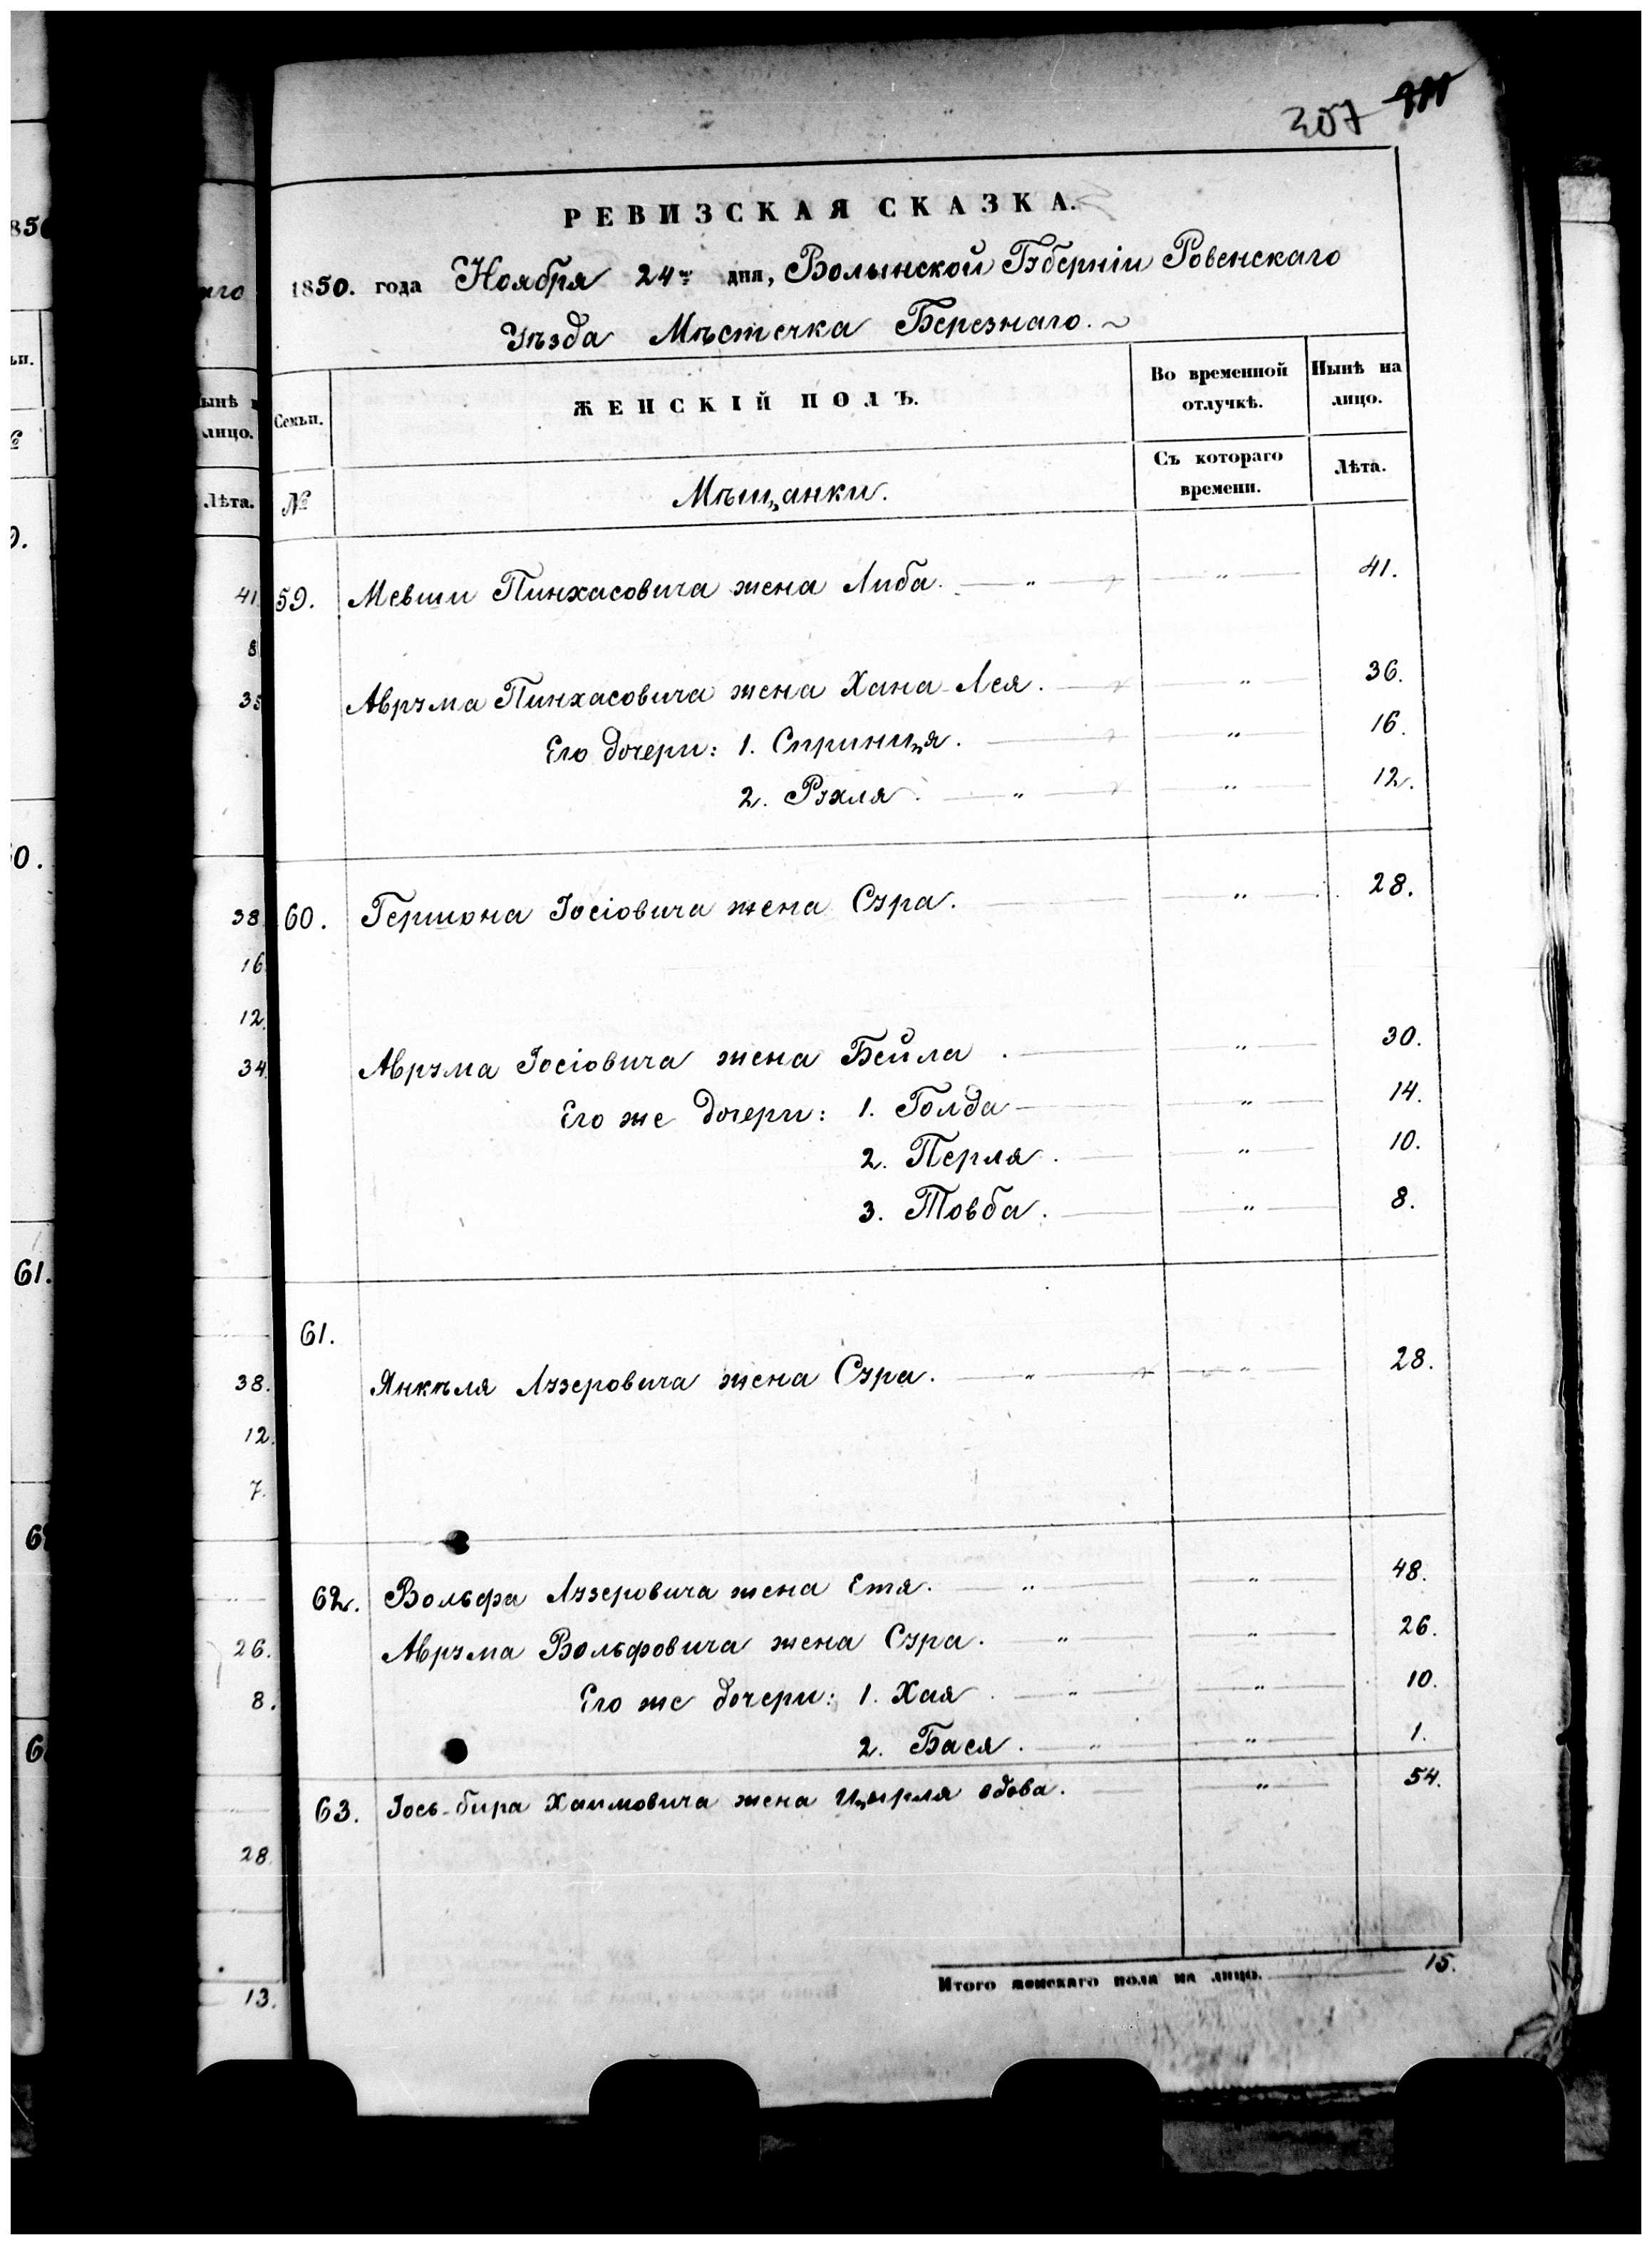 307
РЕВИЗСКАЯ СКАЗКА.
1850. года Ноября 24го дня, Волынской Губерніи Ровенскаго
Уѣзда Мѣстечка Березнаго.
Семьи. ЖЕНСКІЙ ПОЛЪ. Во временной отлучкѣ. Нынѣ на лицо.
№ Мѣщанки. Съ котораго времени. Лѣта.
59. Мевши Пинхасовича жена Либа. — „ — „ — 41.
Аврума Пинхасовича жена Хана-Лея. — „ — 36.
Его дочери: 1. Сприниця. — „ — 16.
2. Рухля. — „ — „ — 12.
60. Гершона Іосіовича жена Сура. — „ — 28.
Аврума Іосіовича жена Бейла. — „ — 30.
Его же дочери: 1. Голда — „ — 14.
2. Перля. — „ — 10.
3. Товба. — „ — 8.
61.
Янкѣля Лузеровича жена Сура. — „ — „ — 28.
62. Вольфа Лузеровича жена Етя. — „ — „ — 48.
Аврума Вольфовича жена Сура. — „ — „ — 26.
Его же дочери: 1. Хая. — „ — „ — 10.
2. Бася. — „ — „ — 1.
63. Іось-бира Хаимовича жена Цырля вдова. — „ — 54.
Итого женскаго пола на лицо. 15.